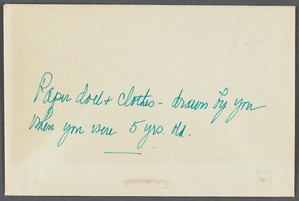 Paper doll + clothes - drawn by you
when you were 5 yrs. old.